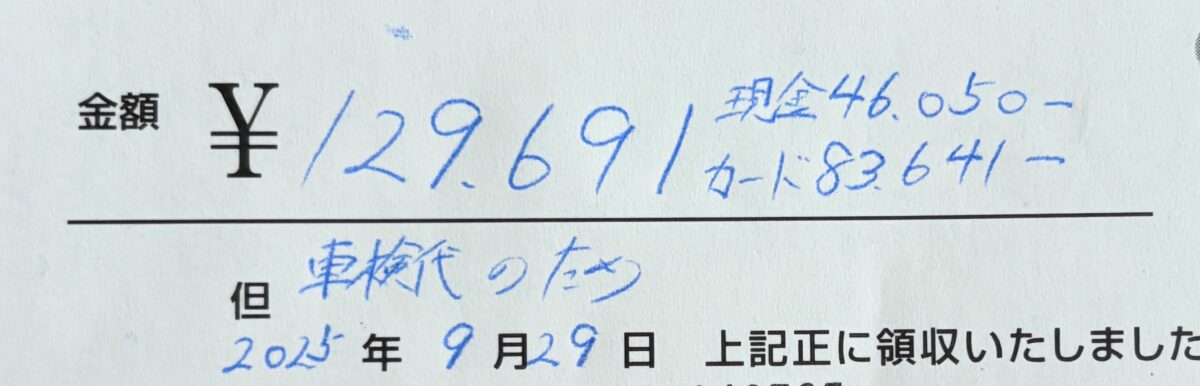 金額 ¥129.691 現金46.050ー
カード83.641ー
但 車検代のため
2025年9月29日 上記正に領収いたしました